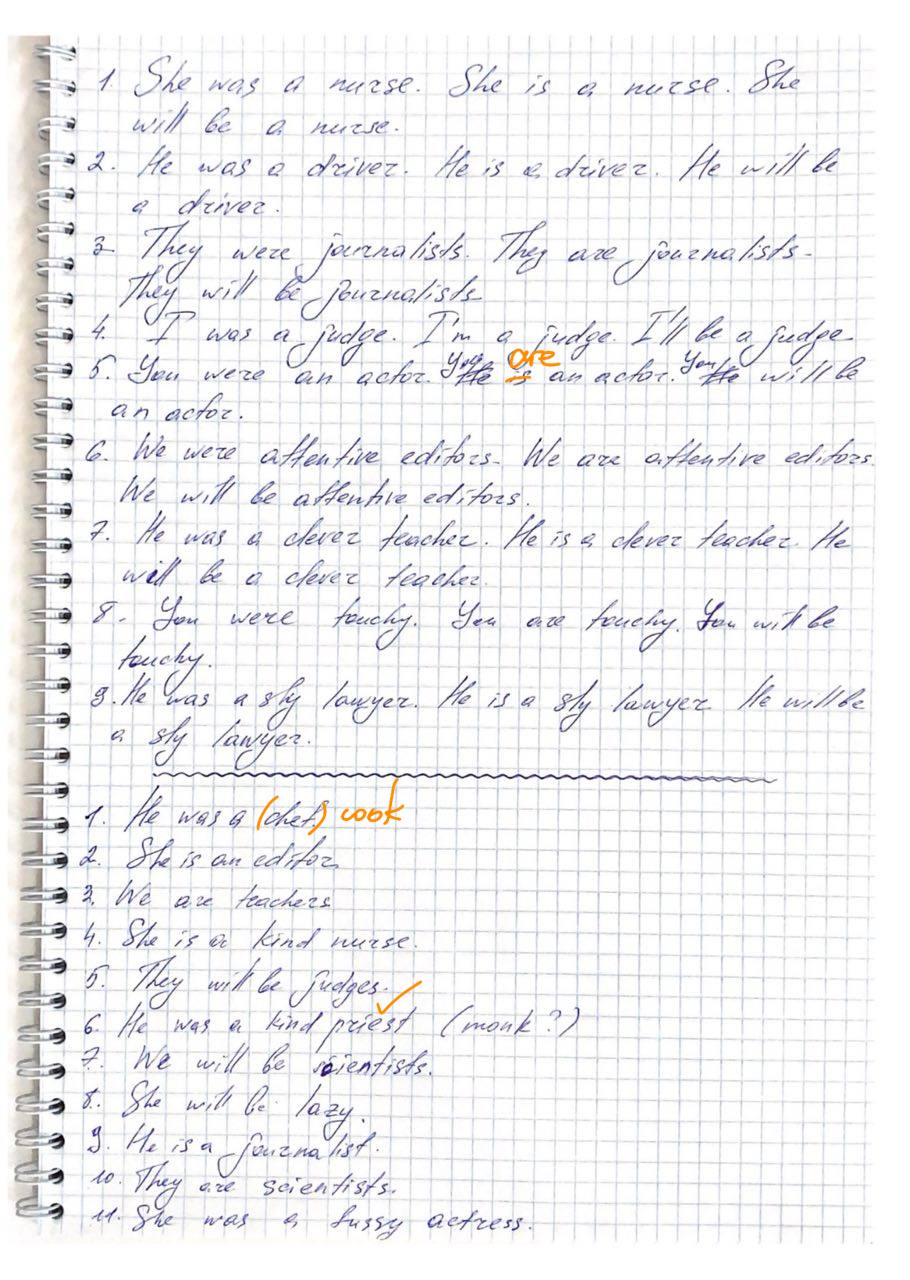 1. She was a nurse. She is a nurse. She
will be a nurse.
2. He was a driver. He is a driver. He will be
a driver.
3. They were journalists. They are journalists.
They will be journalists
4. I was a judge. I'm a judge. I'll be a judge.
5. You were an actor. You He is are an actor. You He will be
an actor.
6. We were attentive editors. We are attentive editors.
We will be attentive editors.
7. He was a clever teacher. He is a clever teacher. He
will be a clever teacher.
8. You were touchy. You are touchy. You will be
touchy.
9. He was a sly lawyer. He is a sly lawyer. He will be
a sly lawyer.
1. He was a (chef.) cook
2. She is an editor.
3. We are teachers
4. She is a kind nurse.
5. They will be judges.
6. He was a kind priest (monk?)
7. We will be scientists.
8. She will be lazy.
9. He is a journalist.
10. They are scientists.
11. She was a fussy actress.